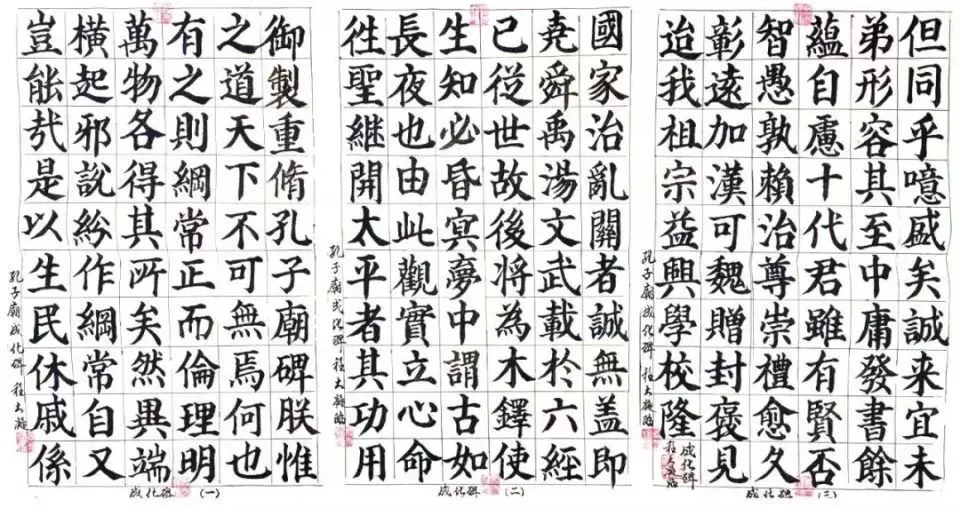 御製重脩孔子廟碑朕惟
之道天下不可無焉何也
有之則綱常正而倫理明
萬物各得其所矣然異端
横起邪說紛作綱常自又
豈能㢤是以生民休戚係
孔子廟成化碑 程大
成化碑 (一)
國家治亂關者誠無盖即
堯舜禹湯文武載於六經
已從世故後將為木鐸使
生知必昏冥夢中謂古如
長夜也由此觀實立心命
徃聖継開太平者其功用
孔子廟成化碑 程大 臨
成化碑 (二)
但同乎噫戚矣誠来宜未
弟形容其至中庸發書餘
蘊自慮十代君雖有賢否
智愚孰賴治尊崇禮愈久
彰遠加漢可魏贈封褒見
迨我祖宗益興學校隆
成化碑
程大 臨
孔子廟成化碑 程大 臨
成化碑 (三)